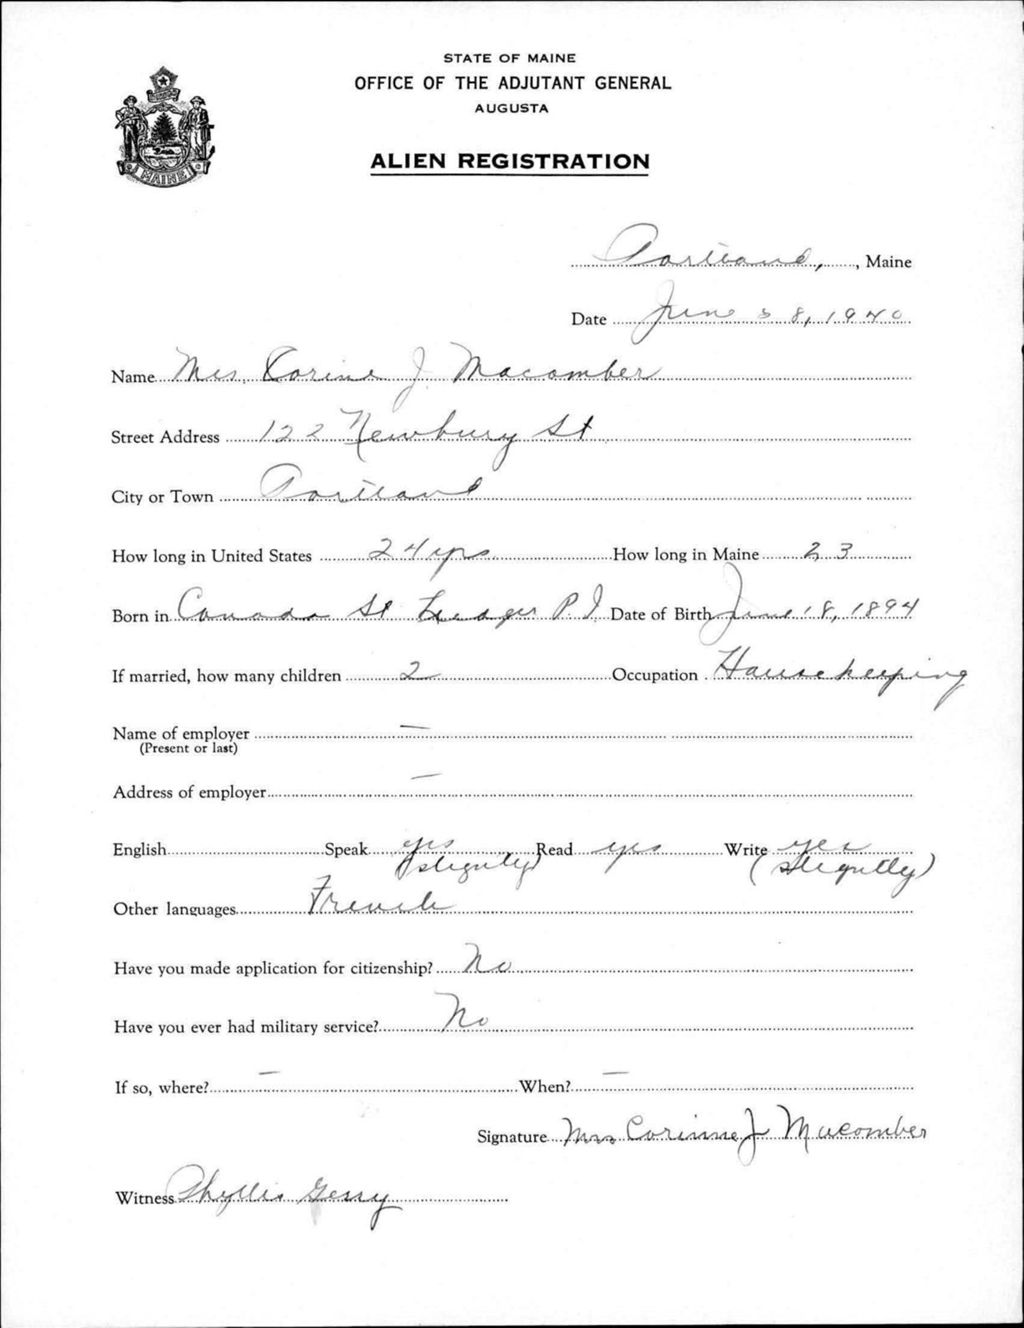 STATE OF MAINE
OFFICE OF THE ADJUTANT GENERAL
AUGUSTA
ALIEN REGISTRATION
MAINE
Portland, , Maine
Date June 28, 1940
Name Mrs. Corine J. Macomber
Street Address 122 Newbury St
City or Town Portland
How long in United States 24 yrs How long in Maine 23
Born in Canada St P.I. Date of Birth June 18, 1894
If married, how many children 2 Occupation Housekeeping
Name of employer —
(Present or last)
Address of employer —
English Speak yes Read yes Write yes
(slightly) (slightly)
Other languages French
Have you made application for citizenship? No
Have you ever had military service? No
If so, where? — When? —
Signature Mrs Corinne J Macomber
Witness Phyllis Gerry